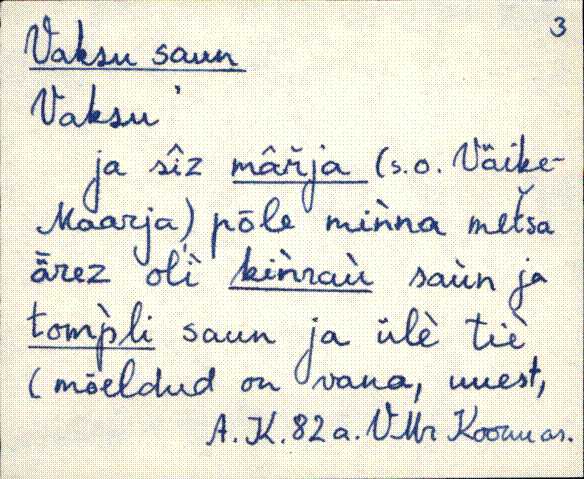 3
Vaksu saun
Vaksu'
ja sîz mâřja (s.o. Väike-
Maarja) pōle mìnna metša
ärez olì kìnraù saùn ja
tom̀pli saun ja ülè tiè
(mõeldud on vana, uuest,
A.K. 82 a. VMr Koonu as.